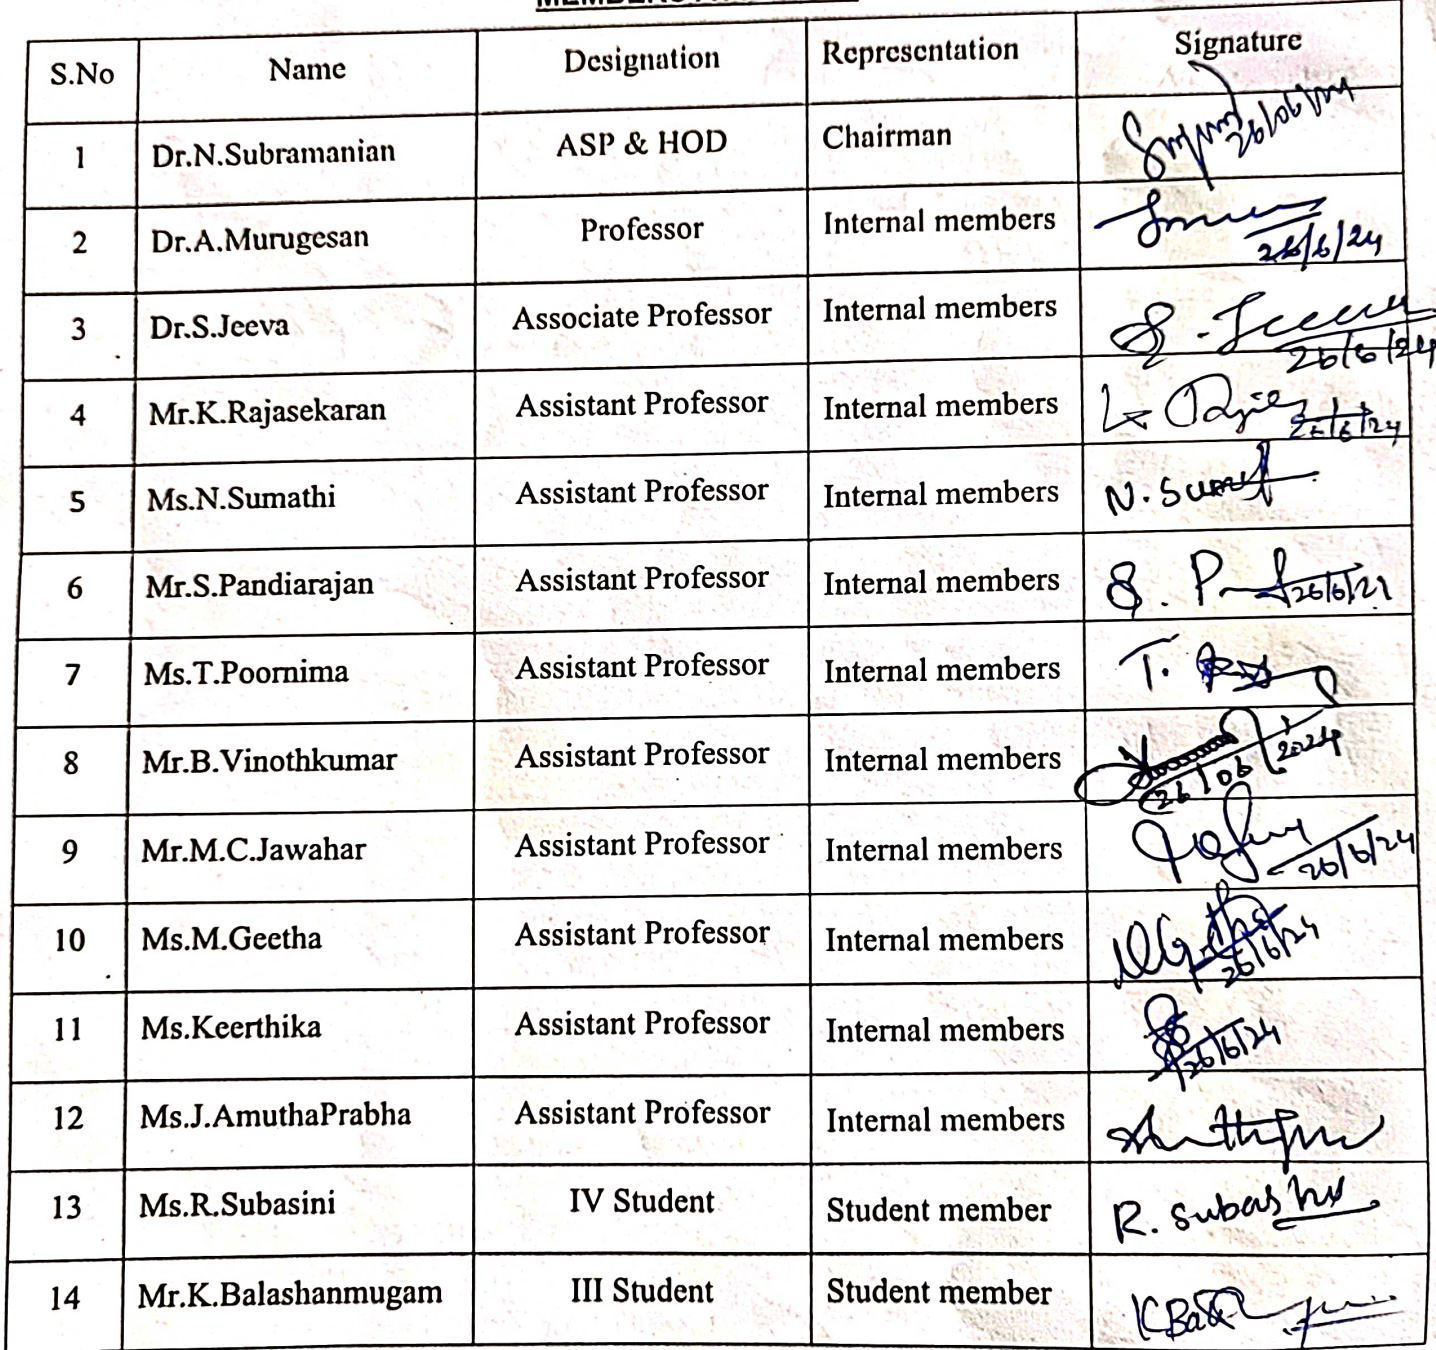 S.No Name Designation Representation Signature
1 Dr.N.Subramanian ASP & HOD Chairman 26/06/24
2 Dr.A.Murugesan Professor Internal members 26/6/24
3 Dr.S.Jeeva Associate Professor Internal members S. Jeeva 26/6/24
4 Mr.K.Rajasekaran Assistant Professor Internal members 26/6/24
5 Ms.N.Sumathi Assistant Professor Internal members N. Sumathi
6 Mr.S.Pandiarajan Assistant Professor Internal members S. P 26/6/21
7 Ms.T.Poornima Assistant Professor Internal members T.
8 Mr.B.Vinothkumar Assistant Professor Internal members 26/06/2024
9 Mr.M.C.Jawahar Assistant Professor Internal members 26/6/24
10 Ms.M.Geetha Assistant Professor Internal members 26/6/24
11 Ms.Keerthika Assistant Professor Internal members 26/6/24
12 Ms.J.AmuthaPrabha Assistant Professor Internal members
13 Ms.R.Subasini IV Student Student member R. Subashini
14 Mr.K.Balashanmugam III Student Student member